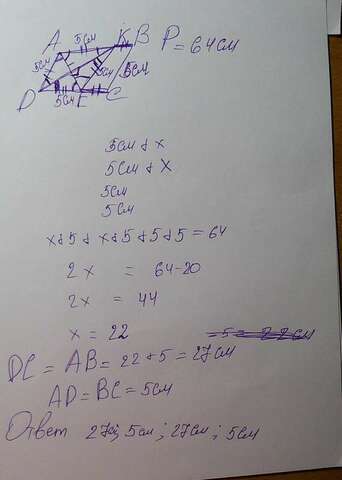 5см
A K B P = 64см
5см 5см 5см
D 5см E C
5см + x
5см + x
5см
5см
x+5 + x+5+5+5 = 64
2x = 64-20
2x = 44
x = 22
DC = AB = 22+5 = 27см
AD = BC = 5см
Ответ 27см; 5см; 27см; 5см